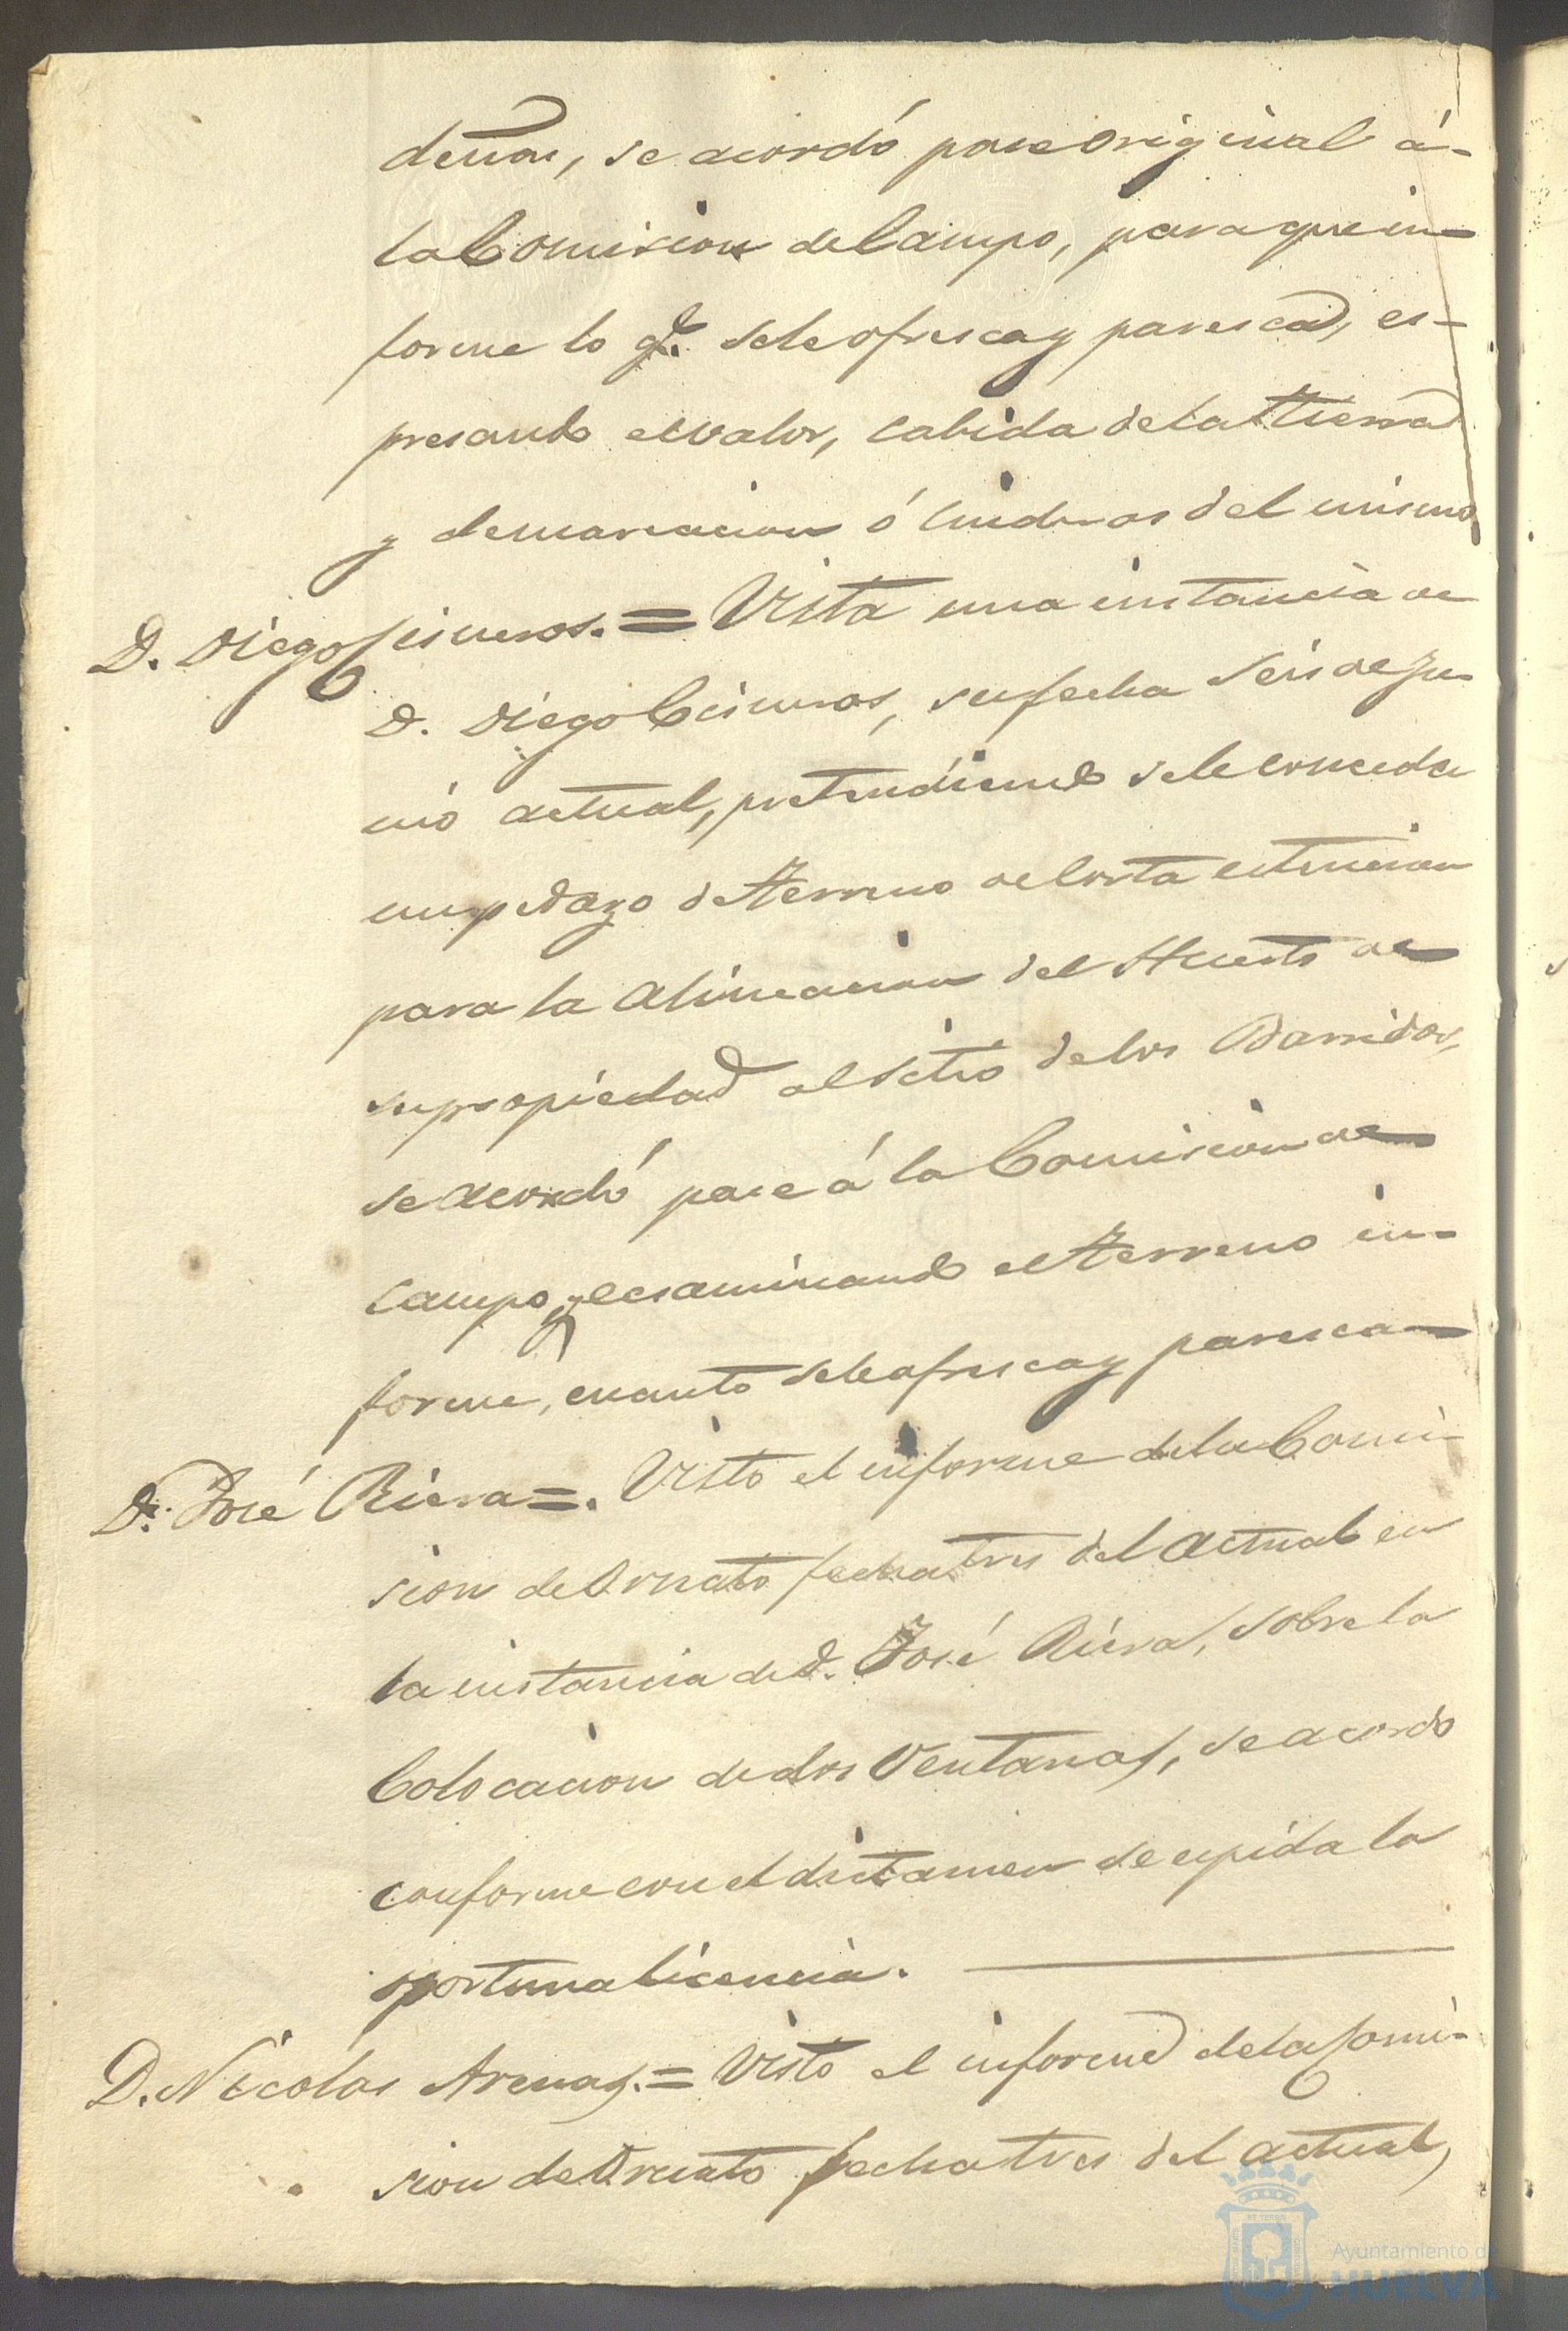 demas, se acordó pase original á
la Comision de Campo, para que in-
forme lo q.e se le ofresca y paresca, es-
presando el valor, cabida de la tierra
y demarcacion ó linderos del mismo.
D. Diego Cisneros. = Vista una instancia de
D. Diego Cisneros, su fecha Seis de Ju-
nio actual, pretendiendo se le conceda
un pedazo de terreno de corta estencion
para la alineacion del Huerto de
su propiedad al Sitio de los Barridos,
se acordó pase á la Comision de
Campo y ecsaminando el terreno in-
forme, cuanto se le ofresca y paresca
D. José Riera =. Visto el informe de la Comi-
sion de Ornato fecha tres del actual en
la instancia de D. José Riera, sobre la
Colocacion de dos Ventanas, se acordo
conforme con el dictamen se espida la
oportuna licencia.
D. Nicolas Arenas. = Visto el informe de la Comi-
sion de Ornato fecha tres del actual,
Ayuntamiento de
HUELVA